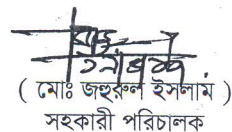 ( মোঃ জহুরুল ইসলাম )
সহকারী পরিচালক